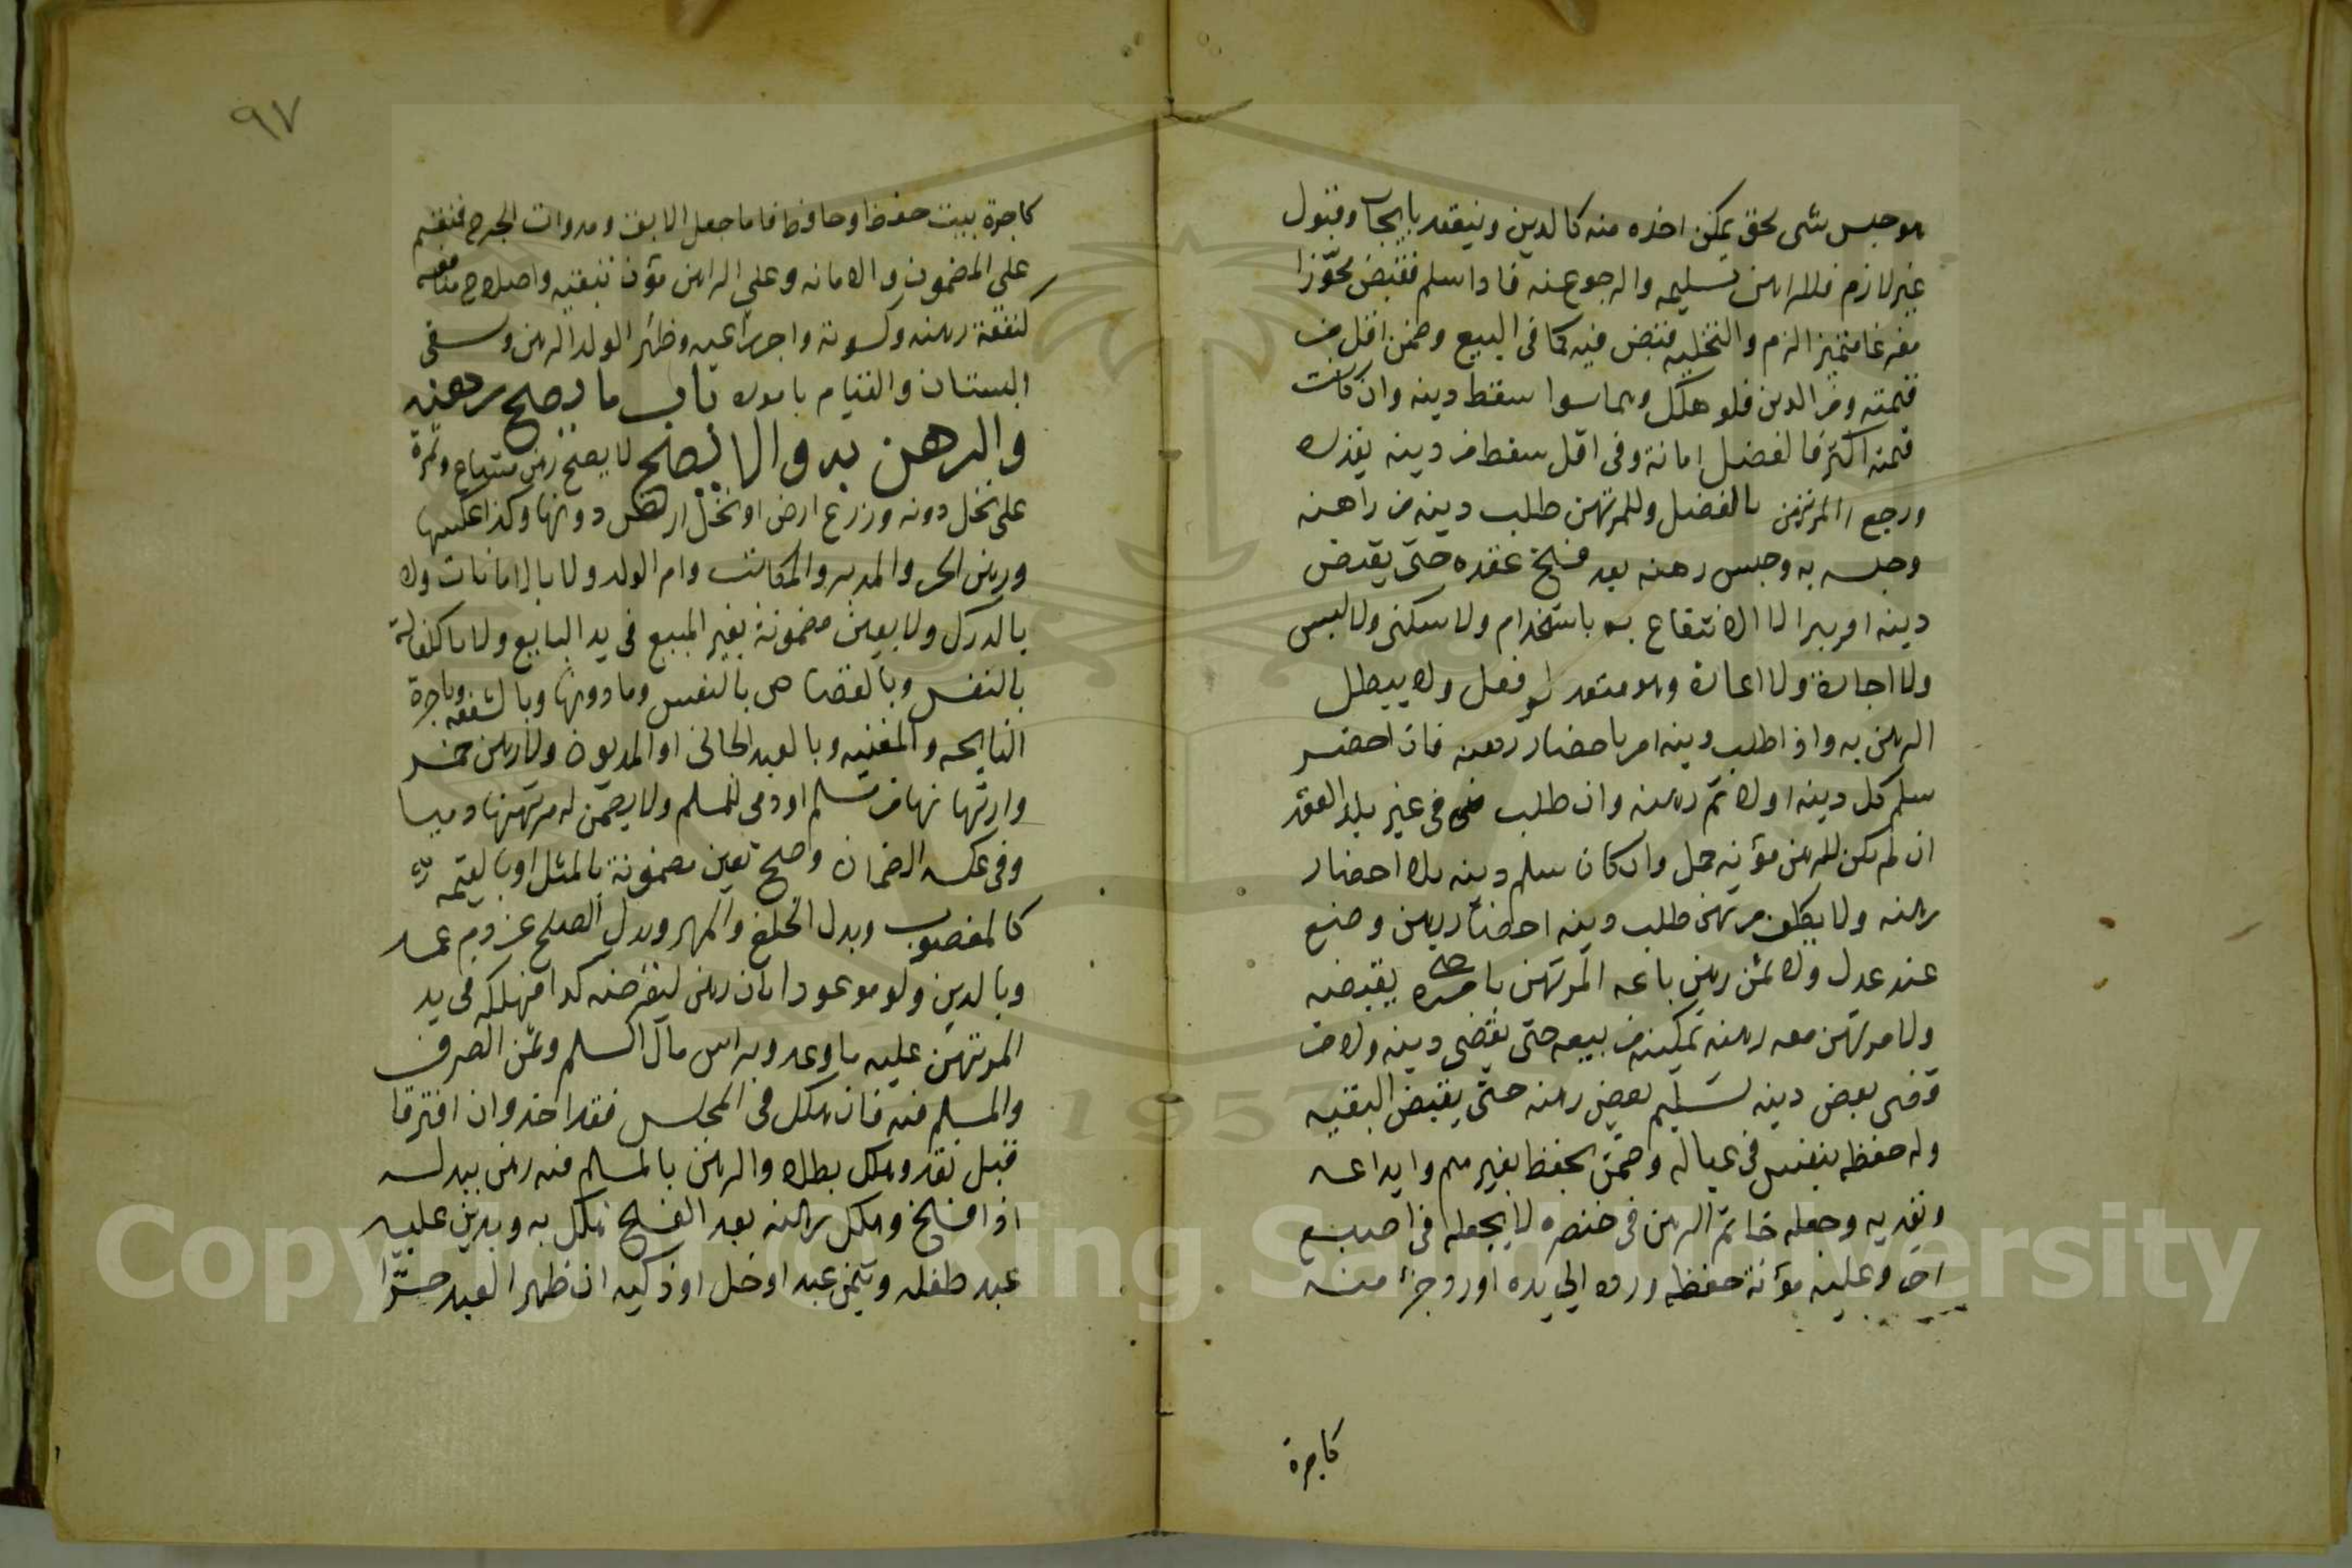 هو حبس شى بحق يمكن اخذه منه كالدين وينعقد بايجاب وقبول
غير لازم فللراهن تسليمه والرجوع عنه فاذا سلم فقبض محوّزا
مفرغا متميزا لزم والتخلية قبض فيه كما فى البيع وضمن باقل من
قيمته ومن الدين فلو هلك وهما سوا سقط دينه وان كانت
قيمته اكثر فالفضل امانة وفى اقل سقط من دينه بقدره
ورجع المرتهن بالفضل وللمرتهن طلب دينه من راهنه
وحبسه به وحبس رهنه بعد فسخ عقده حتى يقبض
دينه او يبرا لا الانتفاع به باستخدام ولا سكنى ولا لبس
ولا اجارة ولا اعارة وهو متعد لو فعل ولا يبطل
الرهن به واذا طلب دينه امر باحضار رهنه فان احضر
سلم كل دينه اولا ثم رهنه وان طلب فى غير بلد العقد
ان لم يكن للرهن مؤنة حمل وان كان سلم دينه بلا احضار
رهنه ولا يكلف مرتهن طلب دينه احضار رهن وضع
عند عدل ولا ثمن رهن باعه المرتهن بامره حتى يقبضه
ولا مرتهن معه رهنه تمكينه من بيعه حتى يقضى دينه ولا من
قضى بعض دينه تسليم بعض رهنه حتى يقبض البقيه
وله حفظه بنفسه فى عياله وضمن بحفظ بغيرهم وايداعه
وتعديه وجعله خاتم الرهن فى خنصره لا يجعله فى اصبع
اخر وعليه مؤنة حفظه ورده الى يده او رد جزء منه
كاجرة
٩٧
كاجرة بيت حفظ وحافظ فاما جعل الابق ومداوات الجرح فتقسم
على المضمون والامانه وعلى الراهن مؤن تبقيته واصلاح منافعه
كنفقة رهنه وكسوته واجر راعيه وظئر الولد الرهن وسقى
البستان والقيام باموره باب ما يصح رهنه
والرهن به والا يصح لا يصح رهن مشاع وثمرة
على نخل دونه وزرع ارض او نخل ارض دونها وكذا عكسها
ورهن الحر والمدبر والمكاتب وام الولد ولا بالامانات ولا
بالدرك ولا بعين مضمونة بغير المبيع فى يد البايع ولا بالكفالة
بالنفس وبالقصاص بالنفس وما دونها وبالشفعه وباجرة
النايحه والمغنيه وبالعبد الجانى او المديون ولا رهن خمر
وارتهانها من مسلم او ذمى للمسلم ولا يضمن له مرتهنها ذميا
وفى عكسه الضمان وصح بعين مضمونة بالمثل او بالقيمه
كالمغصوب وبدل الخلع والمهر وبدل الصلح عن دم عمد
وبالدين ولو موعودا بان رهن ليقرضه كذا فهلكه فى يد
المرتهن عليه ما وعد وبراس مال السلم وثمن الصرف
والمسلم فيه فان هلك فى المجلس فقد اخذ وان افترقا
قبل نقد وهلك بطلا والرهن بالمسلم فيه رهن ببدله
اذا فسخ وهلك رهنه بعد الفسخ هلك به وبدين عليه
عبد طفله وثمن عبد او خل او ذكيه ان ظهر العبد حرّا